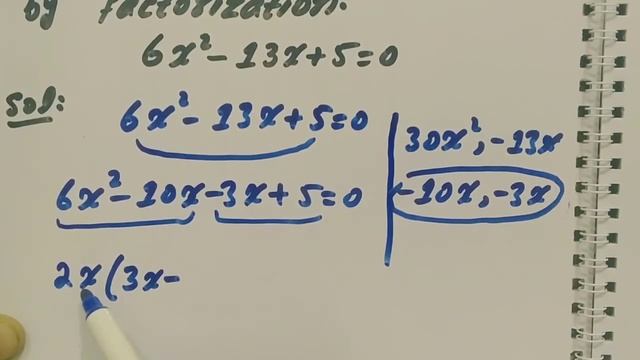 by factorization.
6x² - 13x + 5 = 0
Sol:
6x² - 13x + 5 = 0
30x², -13x
6x² - 10x - 3x + 5 = 0
-10x, -3x
2x(3x -